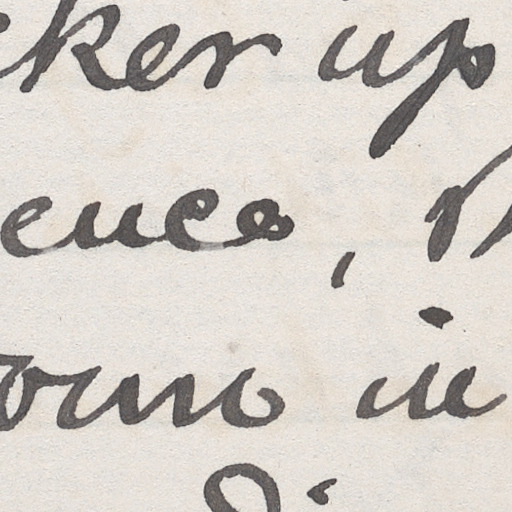 cker up
ence,
own in